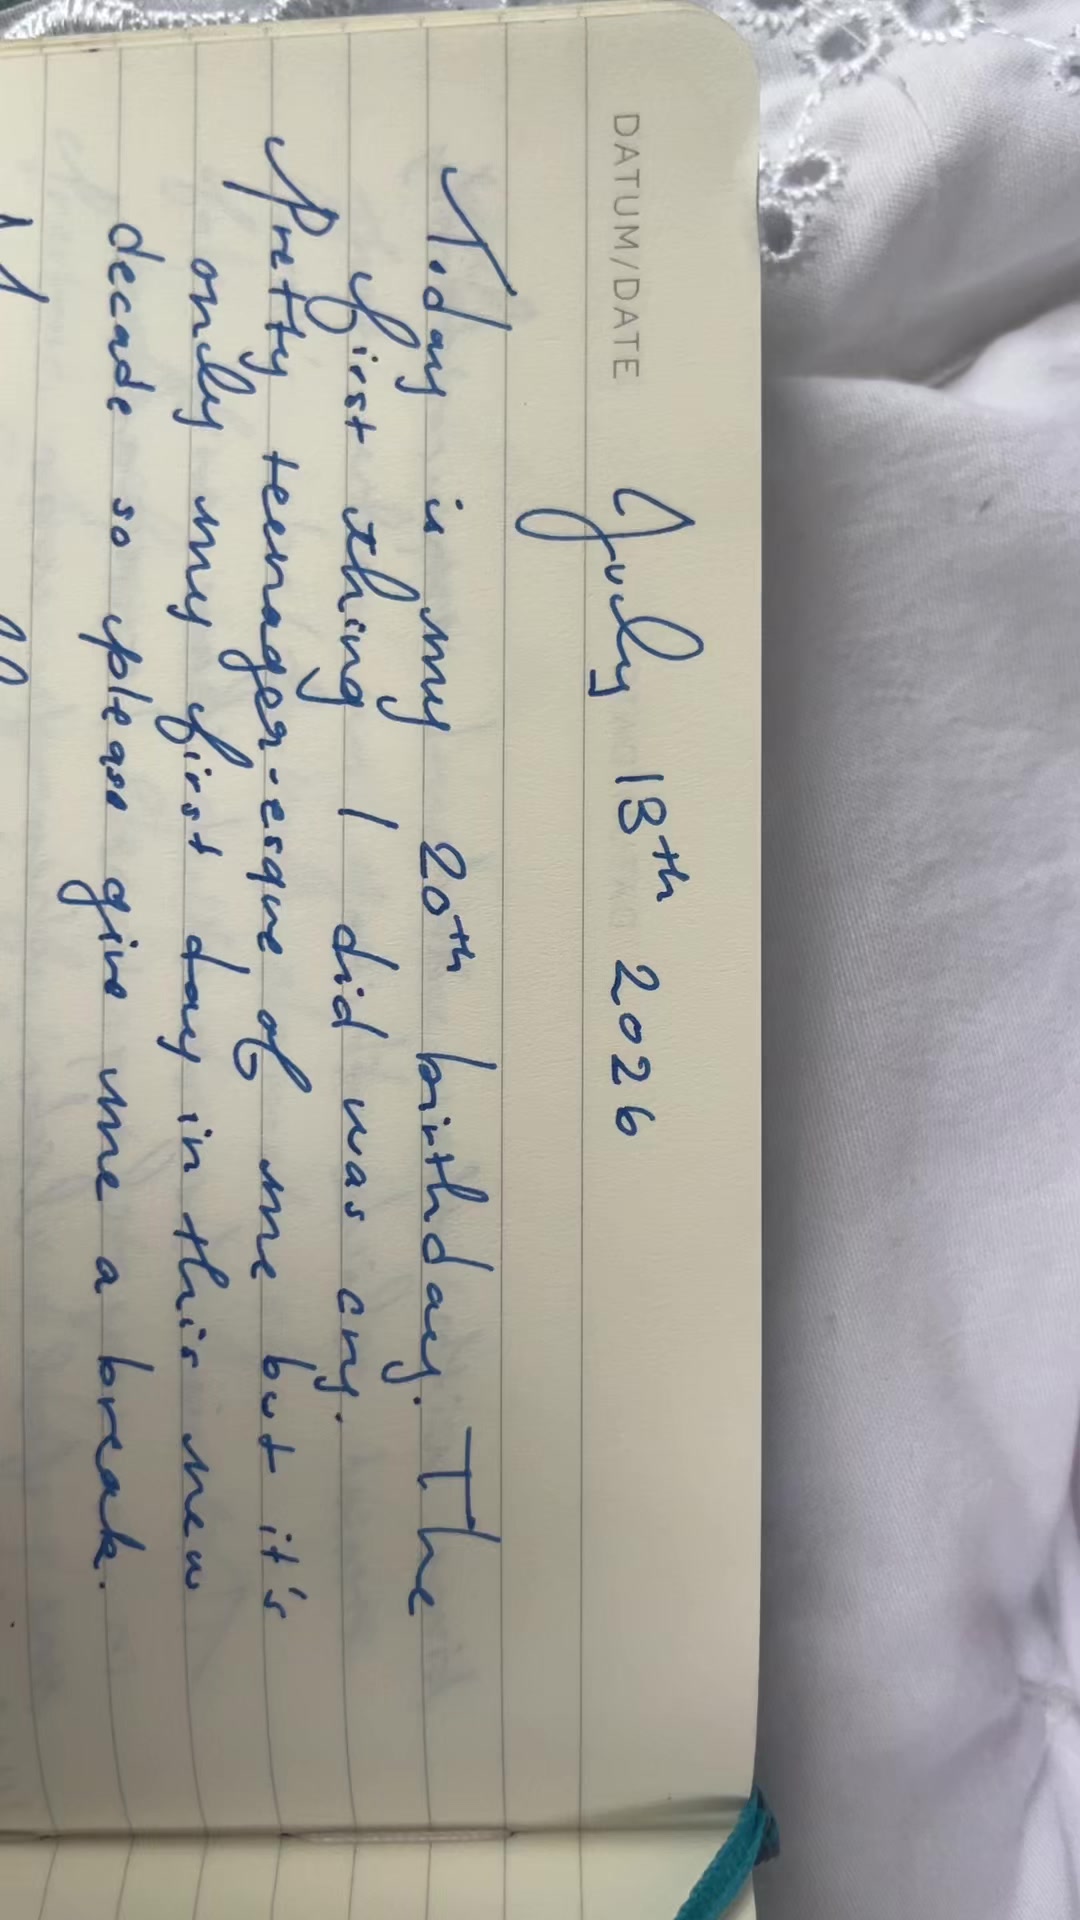 DATUM/DATE
July 13th 2026
Today is my 20th birthday. The
first thing I did was cry.
Pretty teenager-esque of me but it's
only my first day in this new
decade so please give me a break.